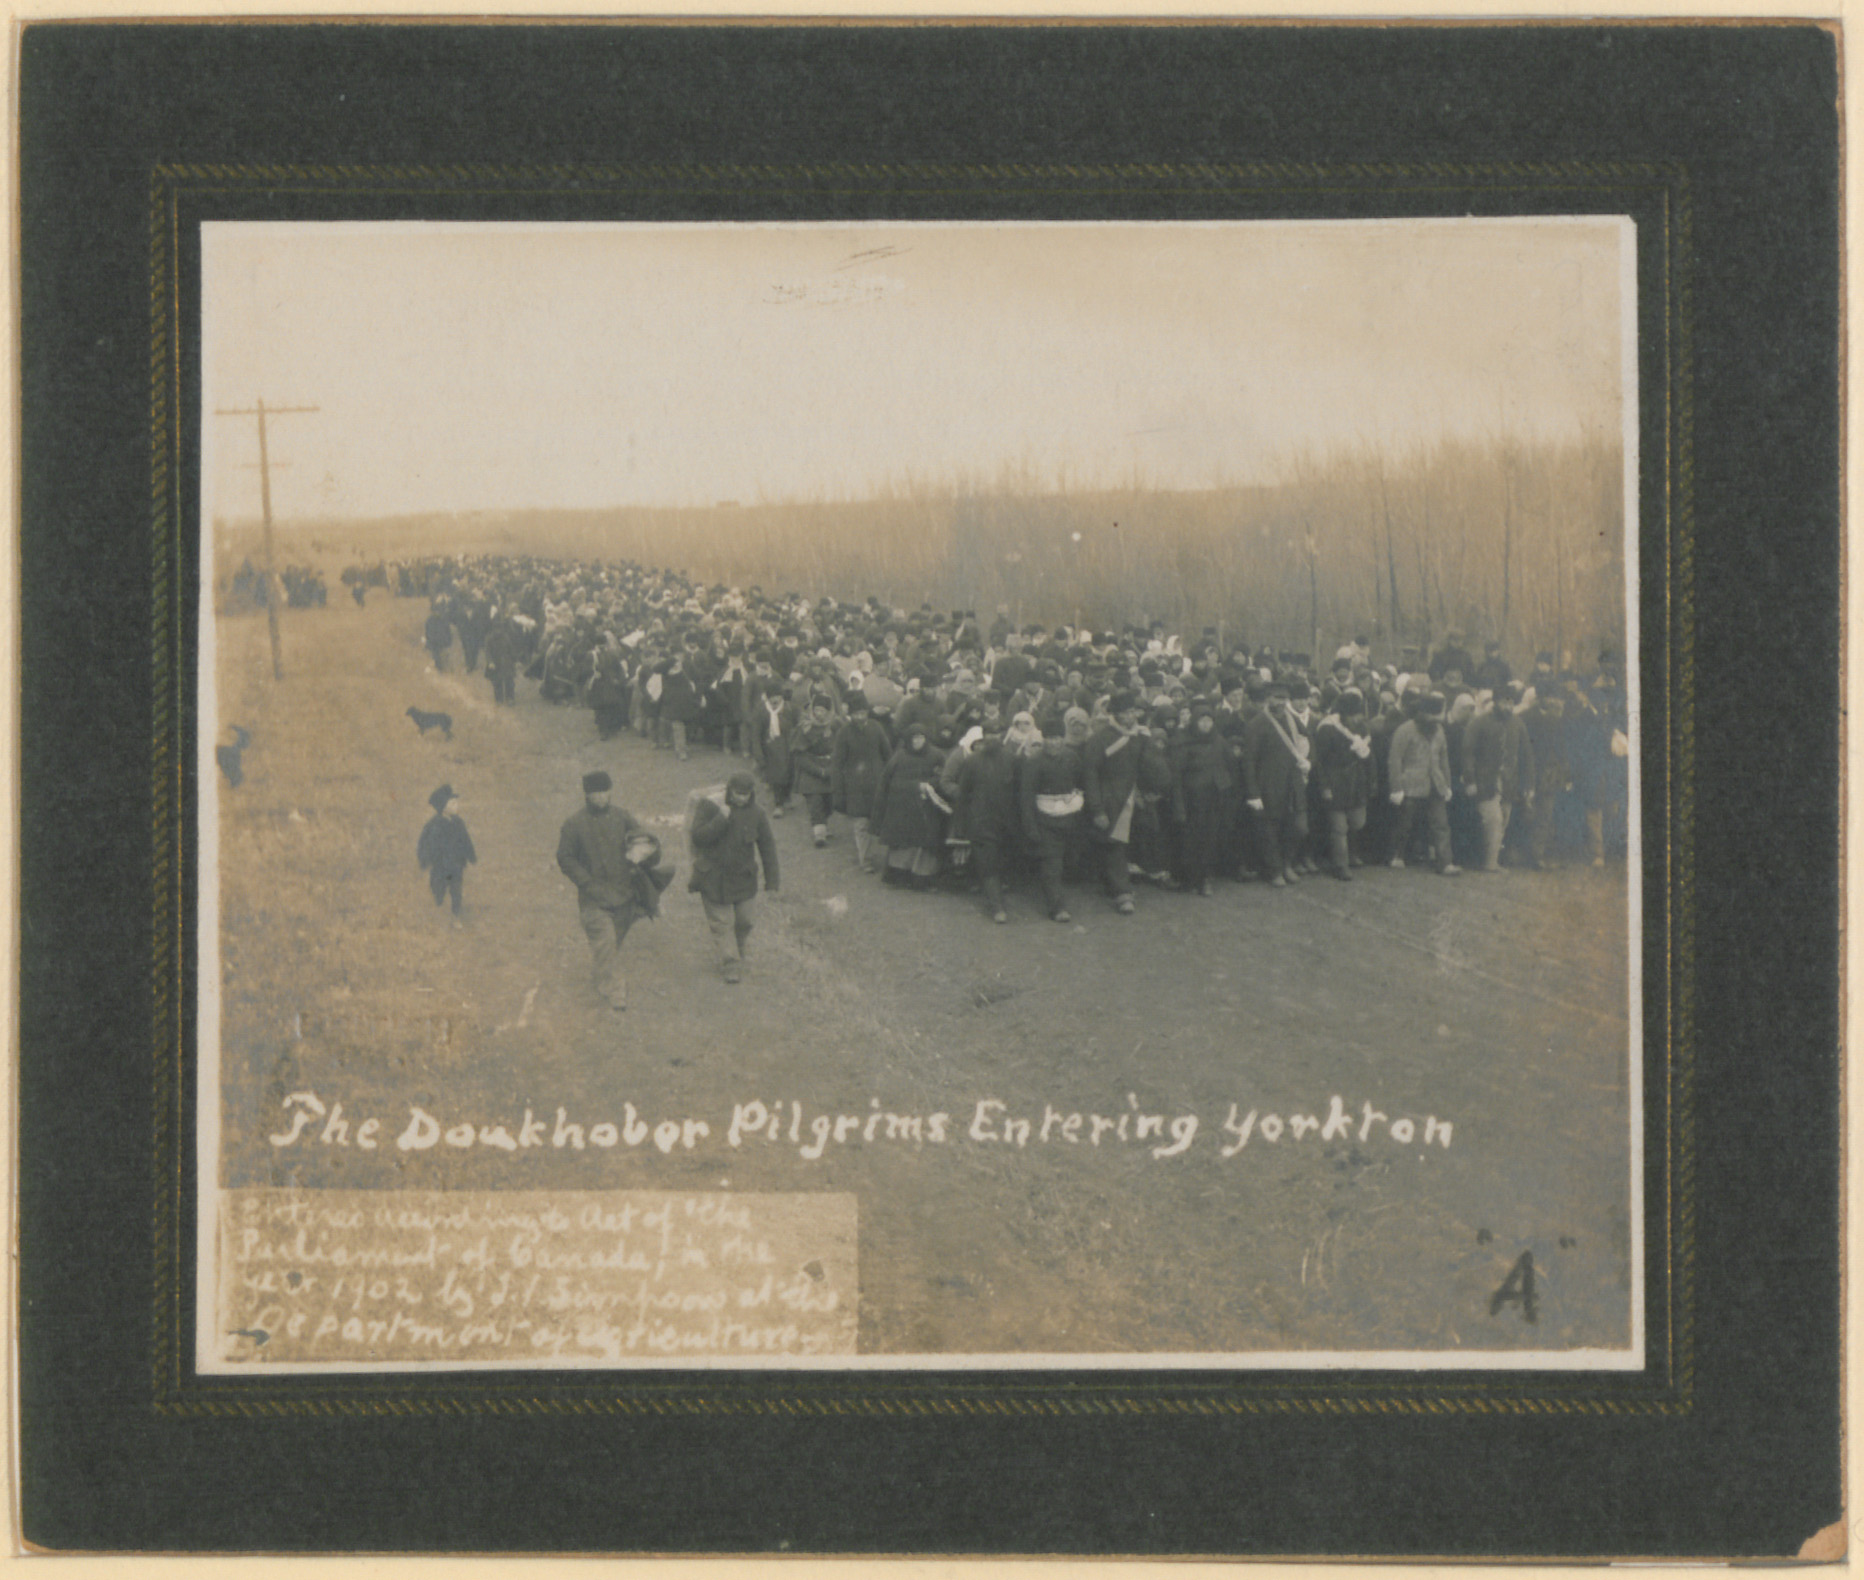 The Doukhobor Pilgrims Entering Yorkton
Entered according to Act of the
Parliament of Canada, in the
year 1902 by T. J. Simpson at the
Department of Agriculture.
"A"